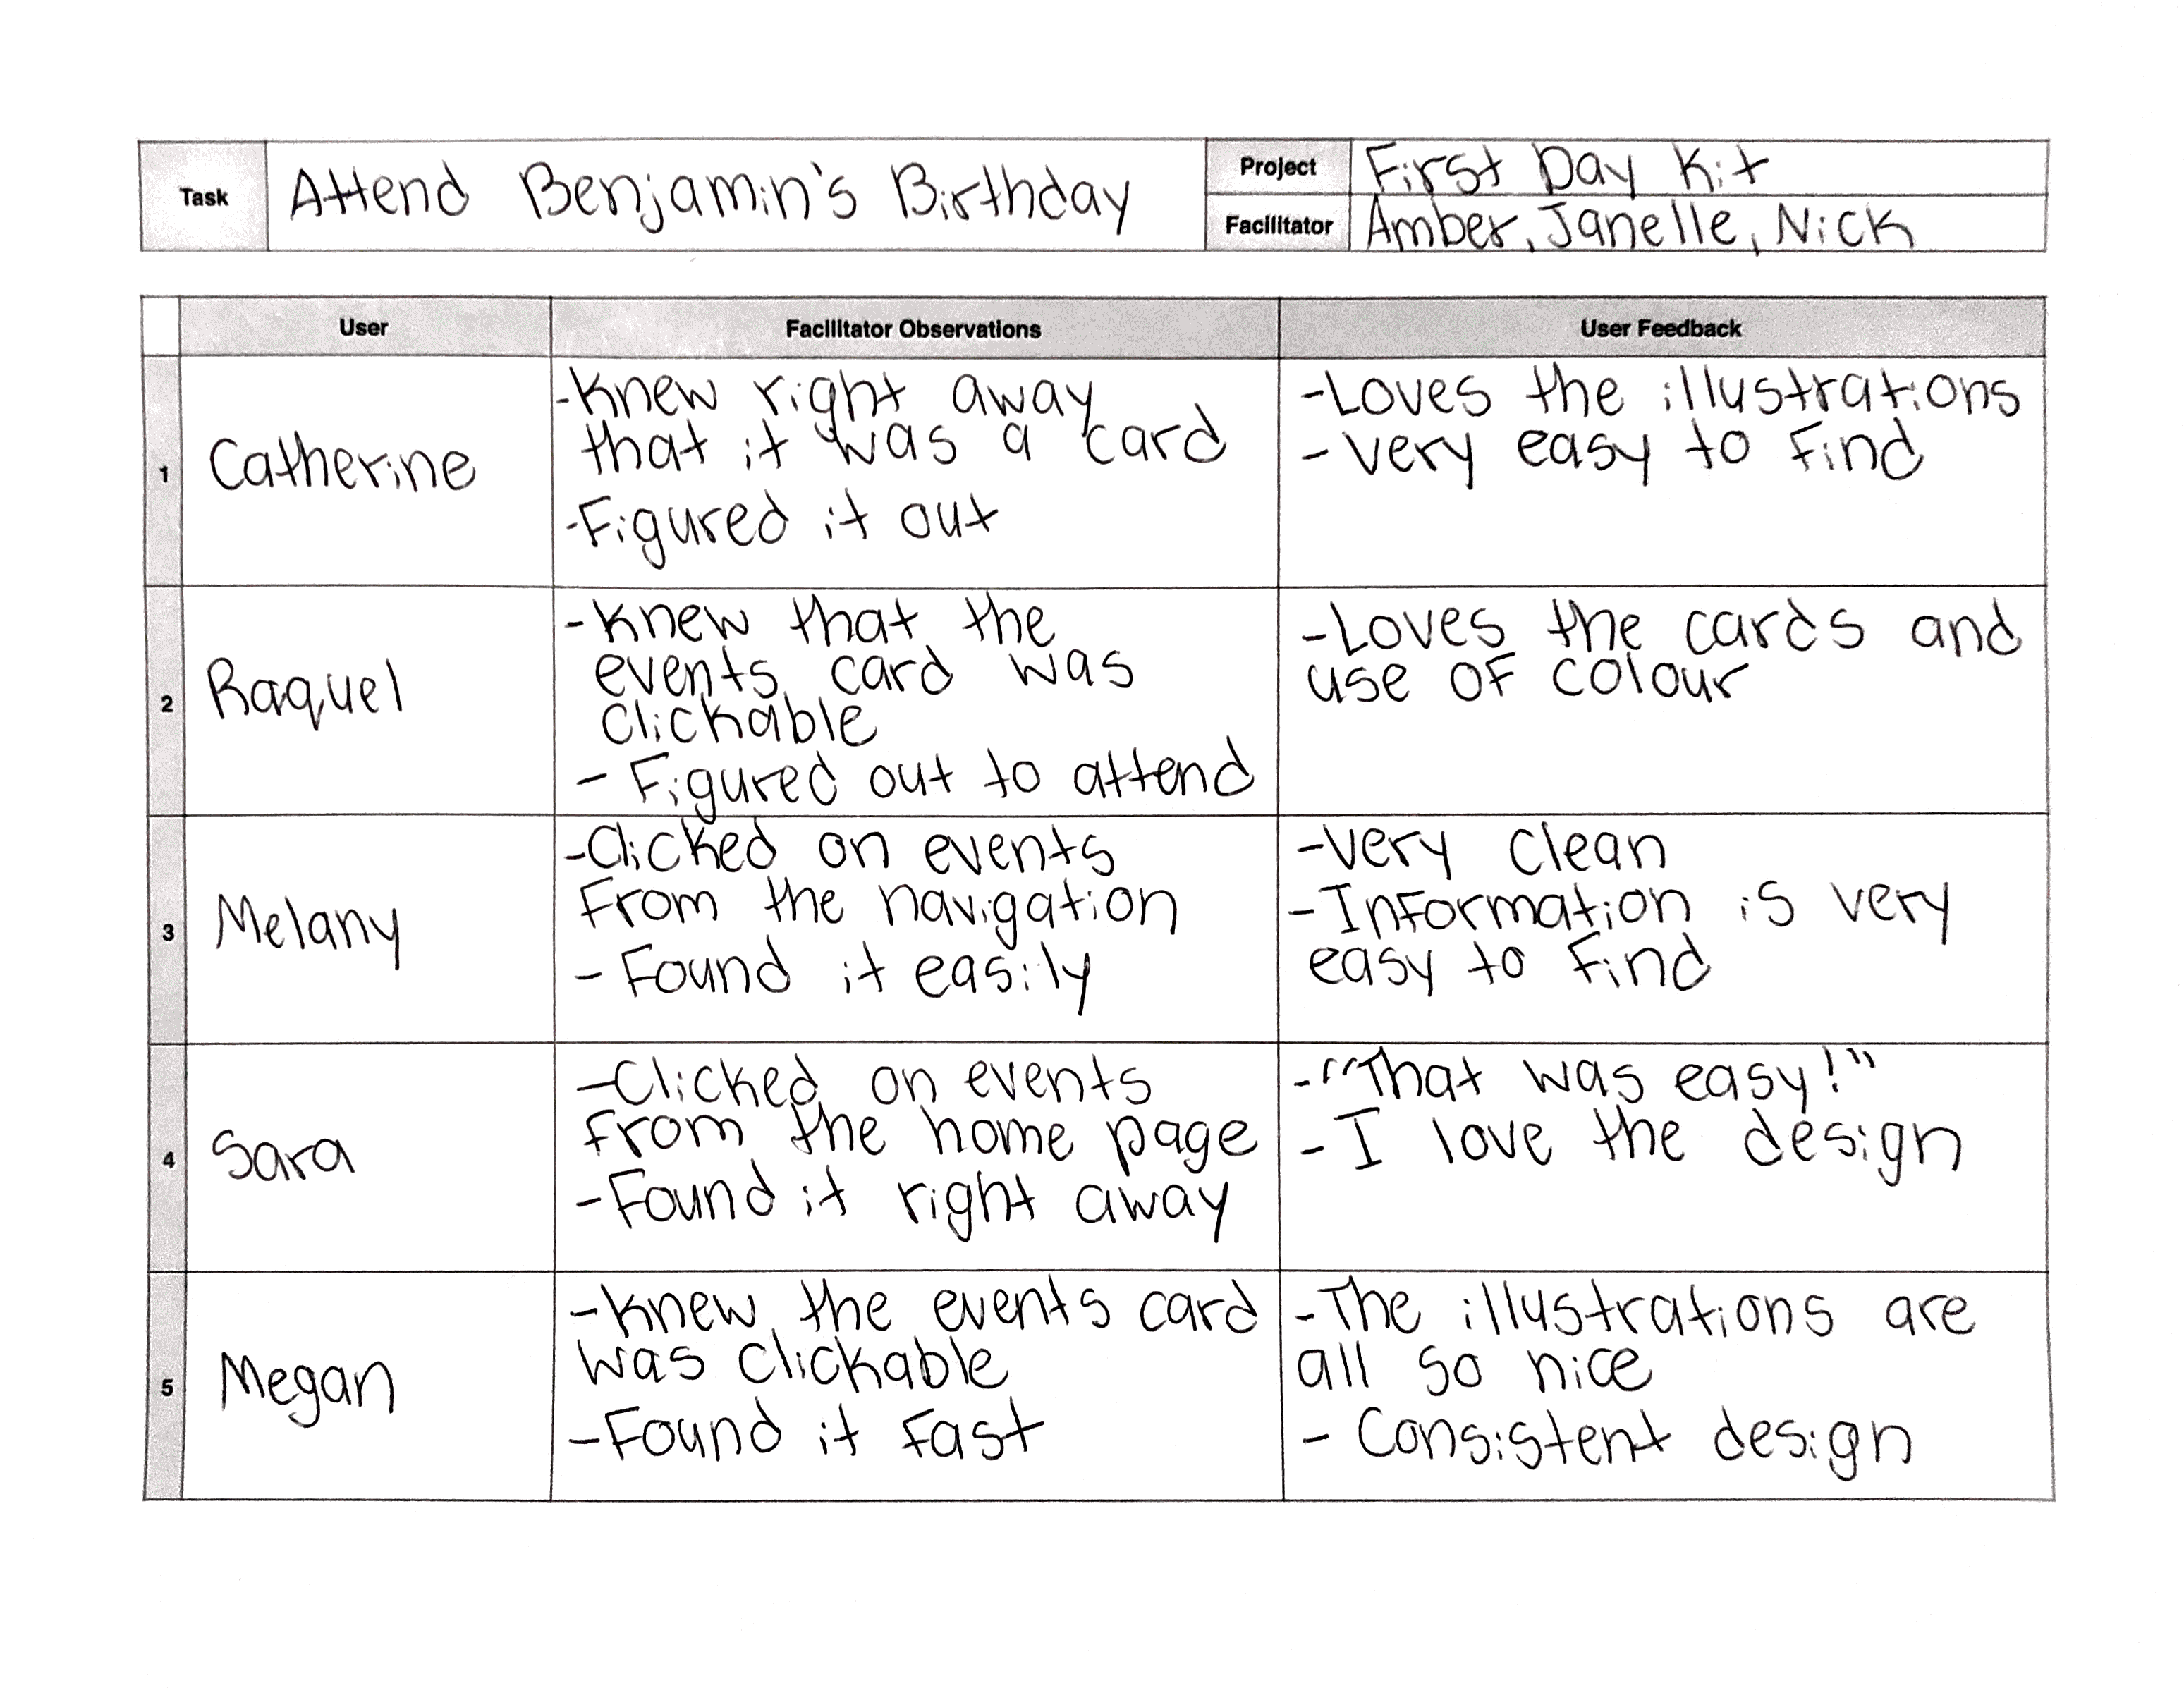 Task
Attend Benjamin's Birthday
Project
First Day Kit
Facilitator
Amber, Janelle, Nick
User
Facilitator Observations
User Feedback
1
Catherine
-Knew right away
that it was a card
-Figured it out
-Loves the illustrations
-very easy to find
2
Raquel
-Knew that the
events card was
clickable
- Figured out to attend
-Loves the cards and
use of colour
3
Melany
-Clicked on events
from the navigation
- Found it easily
-very clean
-Information is very
easy to find
4
Sara
-Clicked on events
from the home page
-Found it right away
-"That was easy!"
-I love the design
5
Megan
-Knew the events card
was clickable
-Found it fast
-The illustrations are
all so nice
- Consistent design